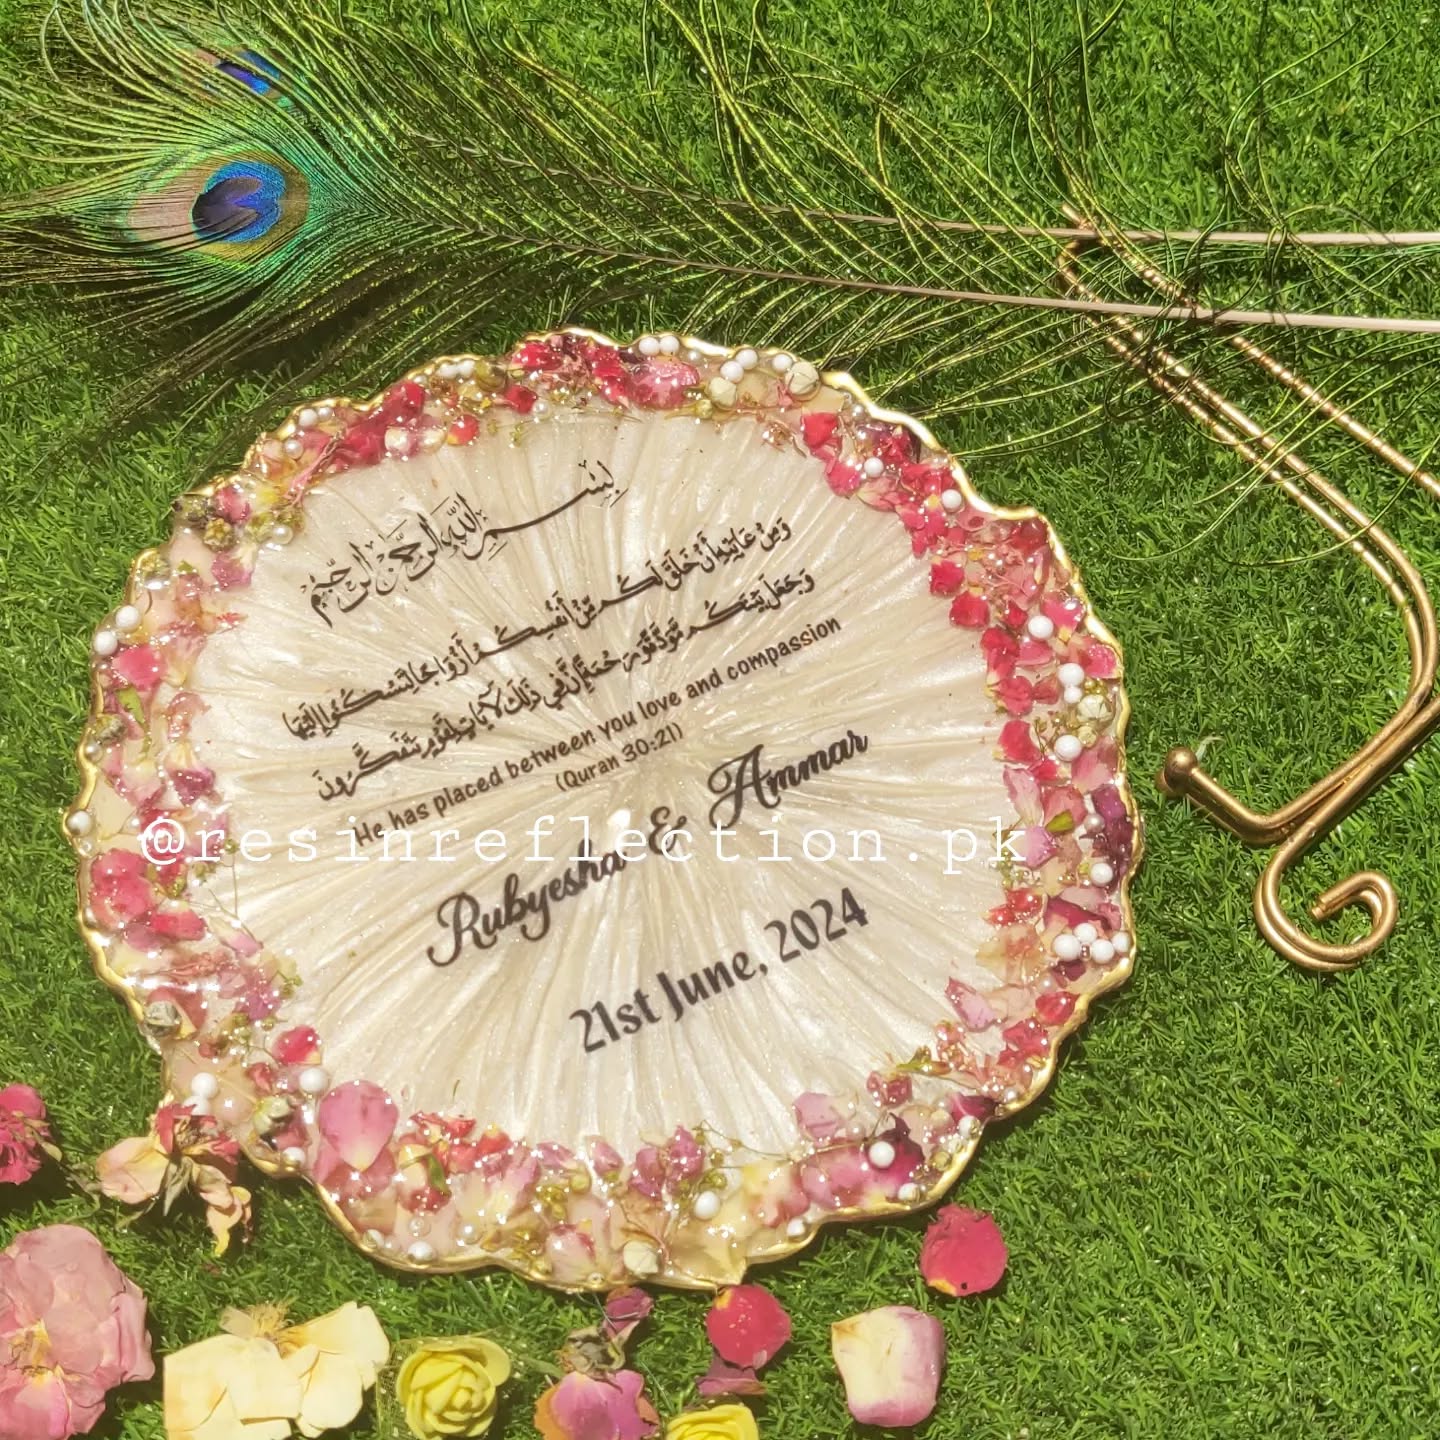 بِسْمِ اللَّهِ الرَّحْمَٰنِ الرَّحِيمِ
وَمِنْ ءَايَٰتِهِۦٓ أَنْ خَلَقَ لَكُم مِّنْ أَنفُسِكُمْ أَزْوَٰجًا لِّتَسْكُنُوٓا۟ إِلَيْهَا
وَجَعَلَ بَيْنَكُم مَّوَدَّةً وَرَحْمَةً إِنَّ فِى ذَٰلِكَ لَءَايَٰتٍ لِّقَوْمٍ يَتَفَكَّرُونَ
He has placed between you love and compassion
(Quran 30:21)
Rubyesha & Ammar
@resinreflection.pk
21st June, 2024